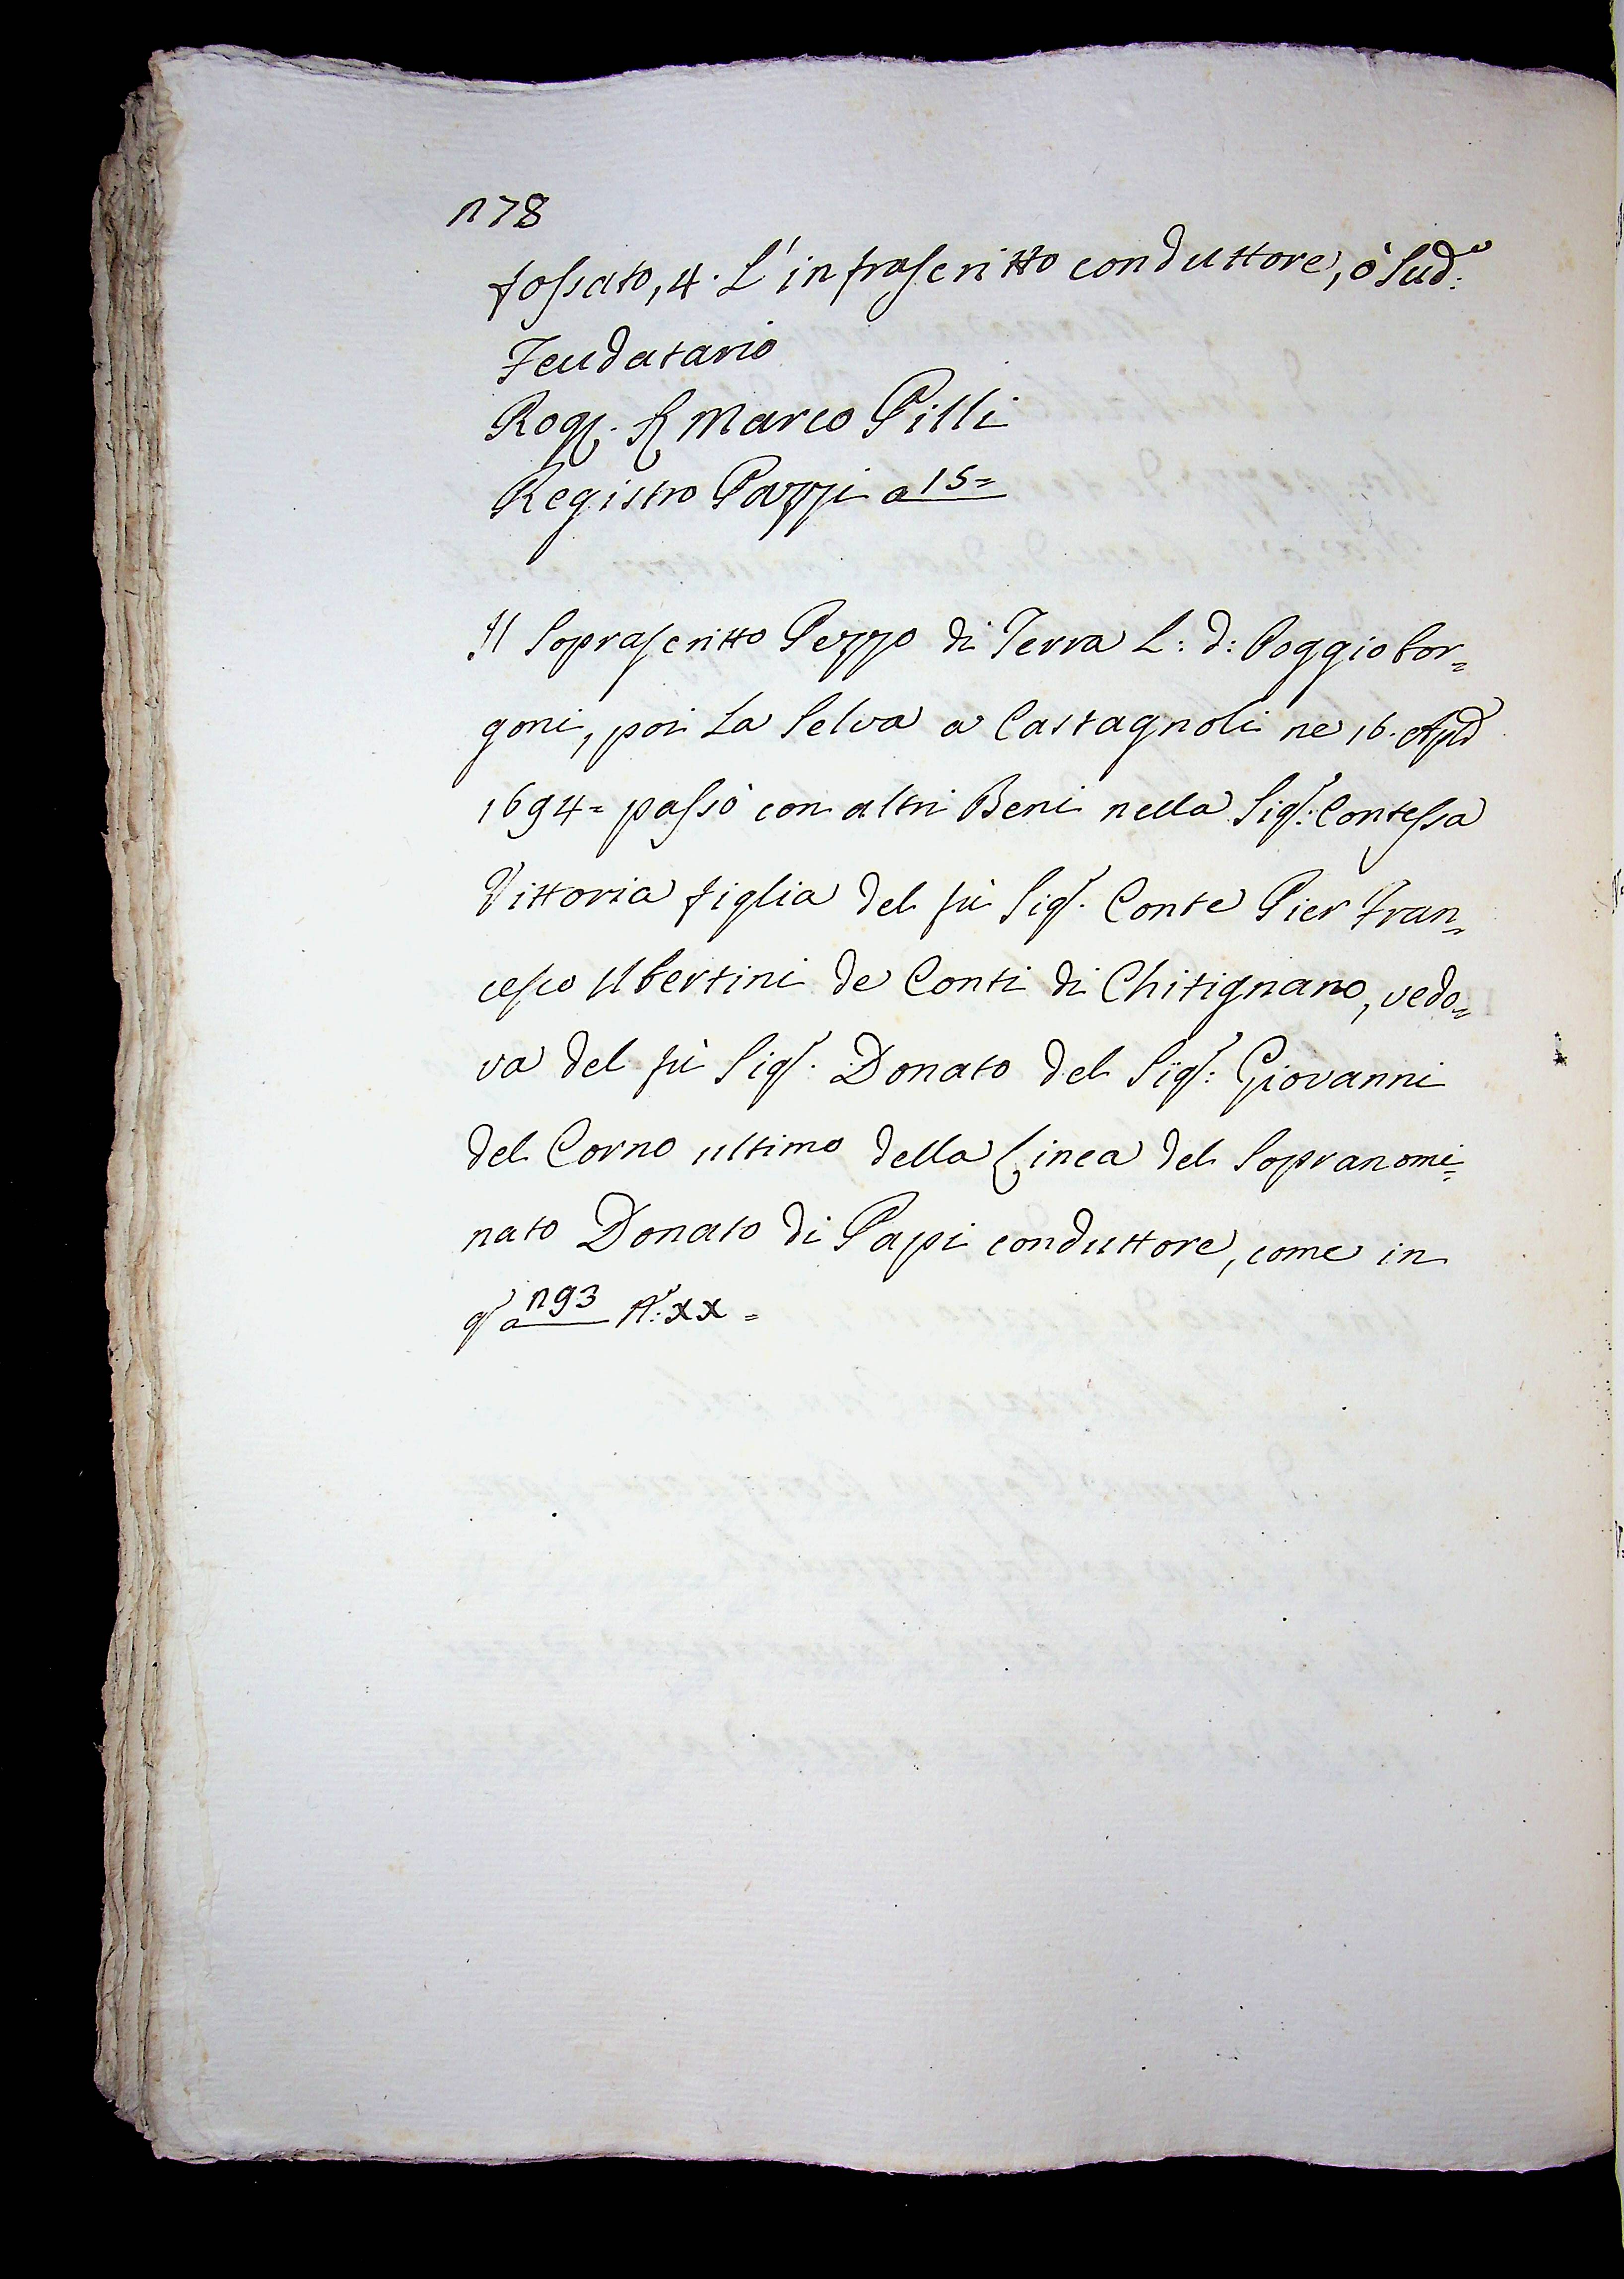 178
fossato, 4. L'infrascritto conduttore, ò Sud:o
Feudatario
Rog. S Marco Pilli
Registro Pazzi a 15=
Il Soprascritto Pezzo di Terra L: d: Poggio bor=
goni, poi La Selva a Castagnoli ne 16. Apl
1694= passò con altri Beni nella Sigr: Contessa
Vittoria figlia del fù Sigr. Conte Pier Fran=
cesco Ubertini de Conti di Chitignano, vedo=
va del fù Sigr. Donato del Sigr: Giovanni
del Corno ultimo della Linea del Sopranomi=
nato Donato di Papi conduttore, come in
qo a 193 No: xx=